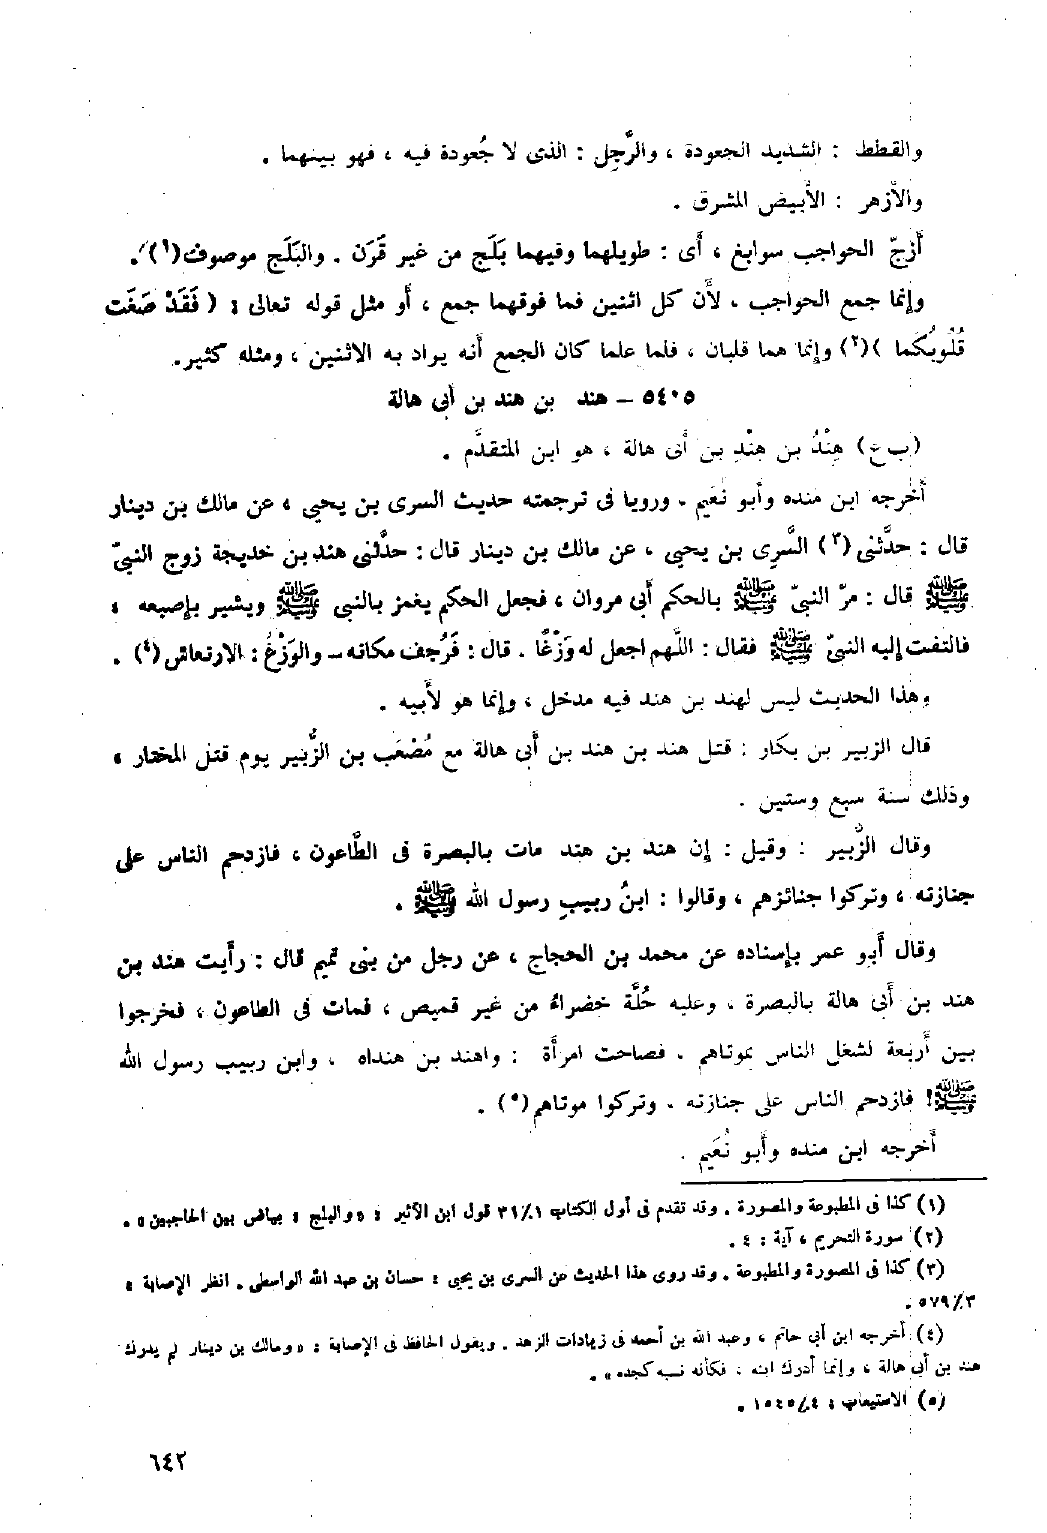 والقطط : الشديد الجعودة ، والرَّجِل : الذى لا جُعودة فيه ، فهو بينهما .
والأزهر : الأبيض المشرق .
أزجّ الحواجب سوابغ ، أى : طويلهما وفيهما بَلَج من غير قَرَن . والبَلَج موصوف(١) .
وإنما جمع الحواجب ، لأن كل اثنين فما فوقهما جمع ، أو مثل قوله تعالى : ( فَقَدْ صَغَت
قُلُوبُكُما )(٢) وإنما هما قلبان ، فلما علما كان الجمع أنه يواد به الاثنين ، ومثله كثير.
٥٤٠٥ – هند بن هند بن أبى هالة
(ب ع) هِنْدُ بن هِنْدِ بن أبى هالة ، هو ابن المتقدَّم .
أخرجه ابن منده وأبو نُعَيم . ورويا فى ترجمته حديث السرى بن يحيى ، عن مالك بن دينار
قال : حدَّثنى (٣) السَّرِى بن يحيى ، عن مالك بن دينار قال : حدَّثنى هند بن خديجة زوج النبيّ
ﷺ قال : مرّ النبيّ ﷺ بالحكم أبى مروان ، فجعل الحكم يغمز بالنبى ﷺ ويشير بإصبعه ،
فالتفت إليه النبيّ ﷺ فقال : اللَّهم اجعل له وَزْغًا . قال : فَرُجف مكانه – والوَزْغُ : الارتعاش (٤) .
وهذا الحديث ليس لهند بن هند فيه مدخل ، وإنما هو لأبيه .
قال الزبير بن بكار : قتل هند بن هند بن أبى هالة مع مُصْعَب بن الزُّبير يوم قتل المختار ،
وذلك سنة سبع وستين .
وقال الزُّبير : وقيل : إن هند بن هند مات بالبصرة فى الطَّاعون ، فازدحم الناس على
جنازته ، وتركوا جنائزهم ، وقالوا : ابنُ ربيبِ رسول الله ﷺ .
وقال أبو عمر بإسناده عن محمد بن الحجاج ، عن رجل من بنى تميم قال : رأيت هند بن
هند بن أبى هالة بالبصرة ، وعليه حُلَّة خضراءُ من غير قميص ، فمات فى الطاعون ، فخرجوا
بين أربعة لشغل الناس بموتاهم . فصاحت امرأة : واهند بن هنداه ، وابن ربيب رسول الله
ﷺ! فازدحم الناس على جنازته ، وتركوا موتاهم(٥) .
أخرجه ابن منده وأبو نُعَيم .
(١) كذا فى المطبوعة والمصورة . وقد تقدم فى أول الكتاب ٣١/١ قول ابن الأثير : «والبلج : بياض بين الحاجبين» .
(٢) سورة التحريم ، آية : ٤ .
(٣) كذا فى المصورة والمطبوعة . وقد روى هذا الحديث عن السرى بن يحيى : حسان بن عبد الله الواسطى . انظر الإصابة :
٥٧٩/٣ .
(٤) أخرجه ابن أبي حاتم ، وعبد الله بن أحمد فى زيادات الزهد . ويقول الحافظ فى الإصابة : «ومالك بن دينار لم يدرك
هند بن أبى هالة ، وإنما أدرك ابنه ، فكأنه نسبه كجده» .
(٥) الاستيعاب : ١٥٤٥/٤ .
٦٤٢